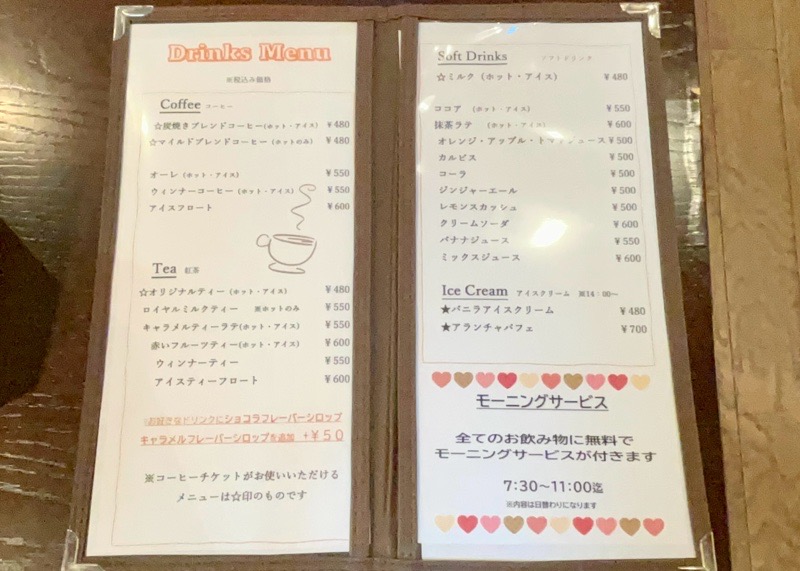 Drinks Menu
※税込み価格
Coffee コーヒー
☆炭焼きブレンドコーヒー(ホット・アイス) ￥480
☆マイルドブレンドコーヒー(ホットのみ) ￥480
オーレ(ホット・アイス) ￥550
ウィンナーコーヒー(ホット・アイス) ￥550
アイスフロート ￥600
Tea 紅茶
☆オリジナルティー(ホット・アイス) ￥480
ロイヤルミルクティー ※ホットのみ ￥550
キャラメルティーラテ(ホット・アイス) ￥550
赤いフルーツティー(ホット・アイス) ￥600
ウィンナーティー ￥550
アイスティーフロート ￥600
お好きなドリンクにショコラフレーバーシロップ
キャラメルフレーバーシロップを追加 +￥50
※コーヒーチケットがお使いいただける
メニューは☆印のものです
Soft Drinks ソフトドリンク
☆ミルク(ホット・アイス) ￥480
ココア (ホット・アイス) ￥550
抹茶ラテ (ホット・アイス) ￥600
オレンジ・アップル・トマトジュース ￥500
カルピス ￥500
コーラ ￥500
ジンジャーエール ￥500
レモンスカッシュ ￥500
クリームソーダ ￥600
バナナジュース ￥550
ミックスジュース ￥600
Ice Cream アイスクリーム ※14：00～
★バニラアイスクリーム ￥480
★アランチャパフェ ￥700
モーニングサービス
全てのお飲み物に無料で
モーニングサービスが付きます
7:30～11:00迄
※内容は日替わりになります